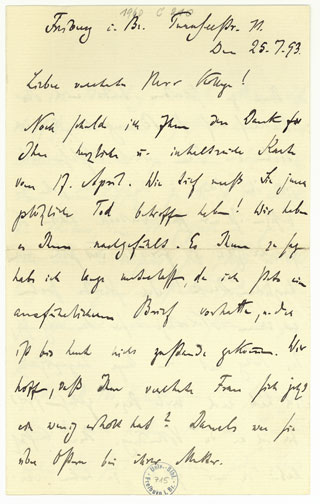 Freiburg i. Br.
Den 25.7.93.
Lieber verehrter Herr Kollege!
Noch schulde ich Ihnen den Dank für
Ihre herzliche u. inhaltreiche Karte
vom 17. April. Wie tief muß Sie jener
plötzliche Tod betroffen haben! Wir haben
es Ihnen nachgefühlt. Es Ihnen zu sagen
habe ich lange unterlassen, da ich stets einen
ausführlicheren Brief vorhatte, u. der
ist bis heute nicht zustande gekommen. Wir
hoffen, daß Ihre verehrte Frau sich jetzt
ein wenig erholt hat? Damals war sie
über Ostern bei ihrer Mutter.
715